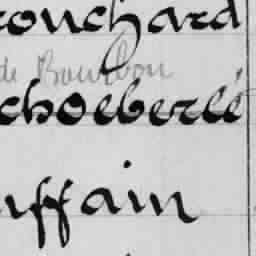 ouchard
de Bourbon
choeberlé
uffain